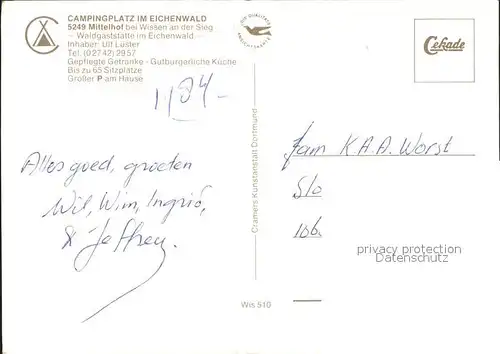 CAMPINGPLATZ IM EICHENWALD
5249 Mittelhof bei Wissen an der Sieg
— Waldgaststätte im Eichenwald —
Inhaber: Ulf Lüster
Tel. (02742) 2957
Gepflegte Getränke · Gutbürgerliche Küche
Bis zu 65 Sitzplätze
Großer P am Hause
DIE QUALITÄTS
ANSICHTSKARTE
Cekade
1184
Alles goed, groeten
Wil, Wim, Ingrid,
& Jeffrey.
Cramers Kunstanstalt Dortmund
Wis 510
fam K.A.A. Worst
Slo
privacy protection
Datenschutz